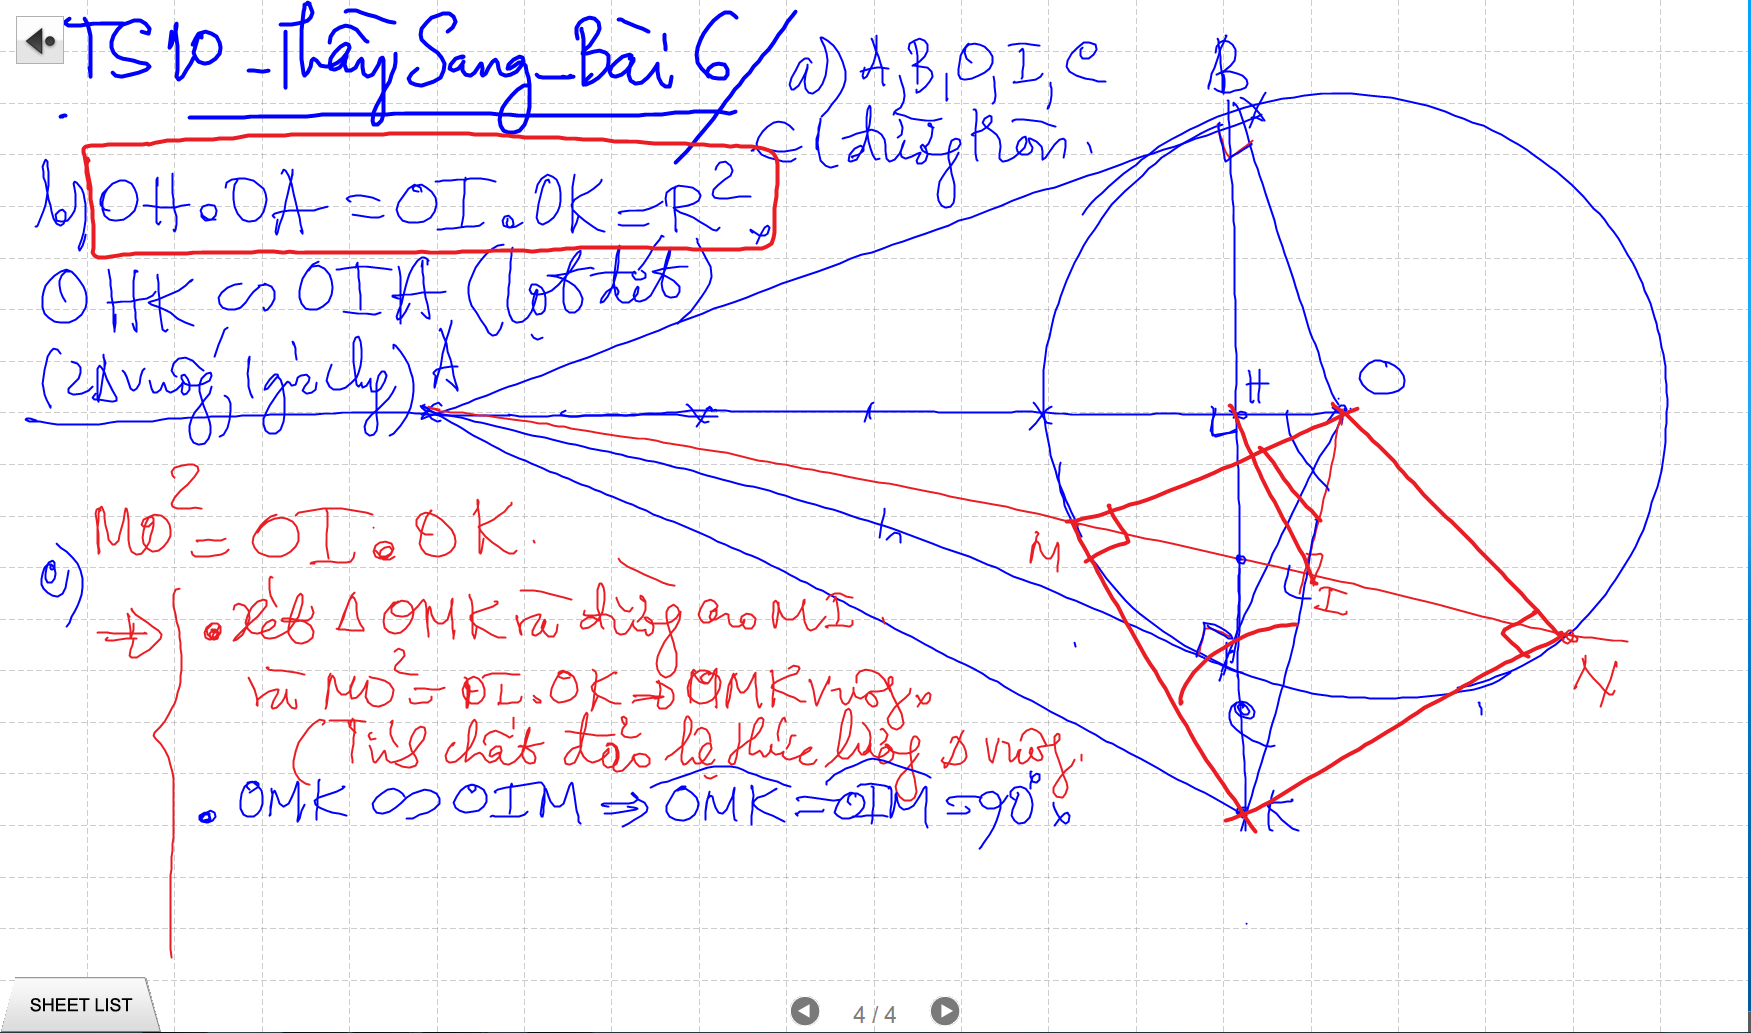 TS10 - Thầy Sang - Bài 6
a) A, B, O, I, C
∈ (đường tròn.
b) OH.OA = OI.OK = R²
OHK ∽ OIA (lọt đét)
(2Δ vuông, 1 góc chg)
MO² = OI.OK.
c)
⇒ • Xét Δ OMK và đường cao MI
và MO² = OI.OK ⇒ OMK vuông
(Tính chất đảo hệ thức lượng Δ vuông.
• OMK ∽ OIM ⇒ OMK = OIM = 90°
B
A
H
O
M
I
N
K
SHEET LIST
4 / 4